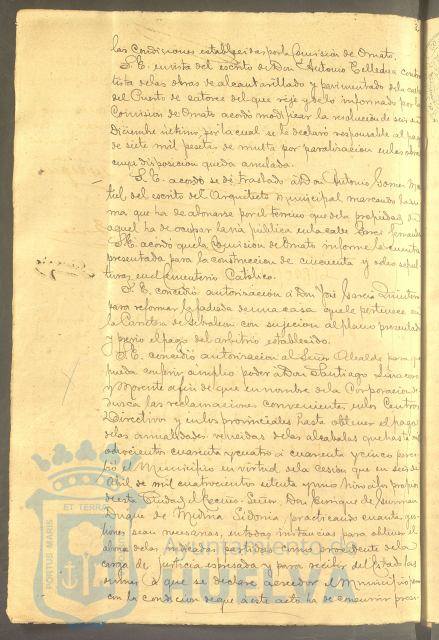 las condiciones establecidas por la Comisión de Ornato.
S.E. en vista del escrito de Don Antonio Telledra contra
tista de las obras de alcantarillado y pavimentado de la calle
del Puerto de del que rije y de lo informado por la
Comision de Ornato acordó modificar la resolucion de seis de
Diciembre último, por la cual se le declaró responsable al pago
de siete mil pesetas de multa por paralizacion en las obras
cuya disposicion queda anulada.
S.E. acordó se dé traslado á Don Antonio Gomez
del escrito del Arquitecto Municipal marcando la su
ma que ha de abonarse por el terreno que de la propiedad de
aquel ha de ocupar la via pública en la calle
S.E. acordó que la Comision de Ornato informe la cuenta
presentada para la construccion de cincuenta y ocho sepul
turas en el Cementerio Católico.
S.E. concedió autorización á Don José Garcia Quintero
para reformar la fachada de una casa que le pertenece en
la Carretera de Gibraleon con sujecion al plano presentado
y previo el pago del arbitrio establecido.
S.E. concedió autorizacion al Señor Alcalde para que
pueda conferir amplio poder á Don Santiago
y Morente á fin de que en nombre de la Corporacion de
duzca las reclamaciones convenientes en los Centros
Directivos y en los provinciales hasta obtener el pago
de las anualidades vencidas de las alcabalas que hasta mil
ochocientos cuarenta y cuatro á cuarenta y cinco perci
bió el Municipio en virtud de la cesion que en seis de
Abril de mil cuatrocientos setenta y uno hizo á los propios
de esta Ciudad el Excmo. Señor Don Enrique de Guzman
Duque de Medina Sidonia, practicando cuantas ges
tiones sean necesarias, en todas instancias para obtener el
abono de las indicadas partidas como procedente de la
carga de justicia espresada y para recibir del Estado las
sumas á que se declare acreedor el Municipio pero
con la condicion de que á este acto ha de concurrir preci
PORTUS MARIS ET TERRAE
Ayuntamiento de
HUELVA